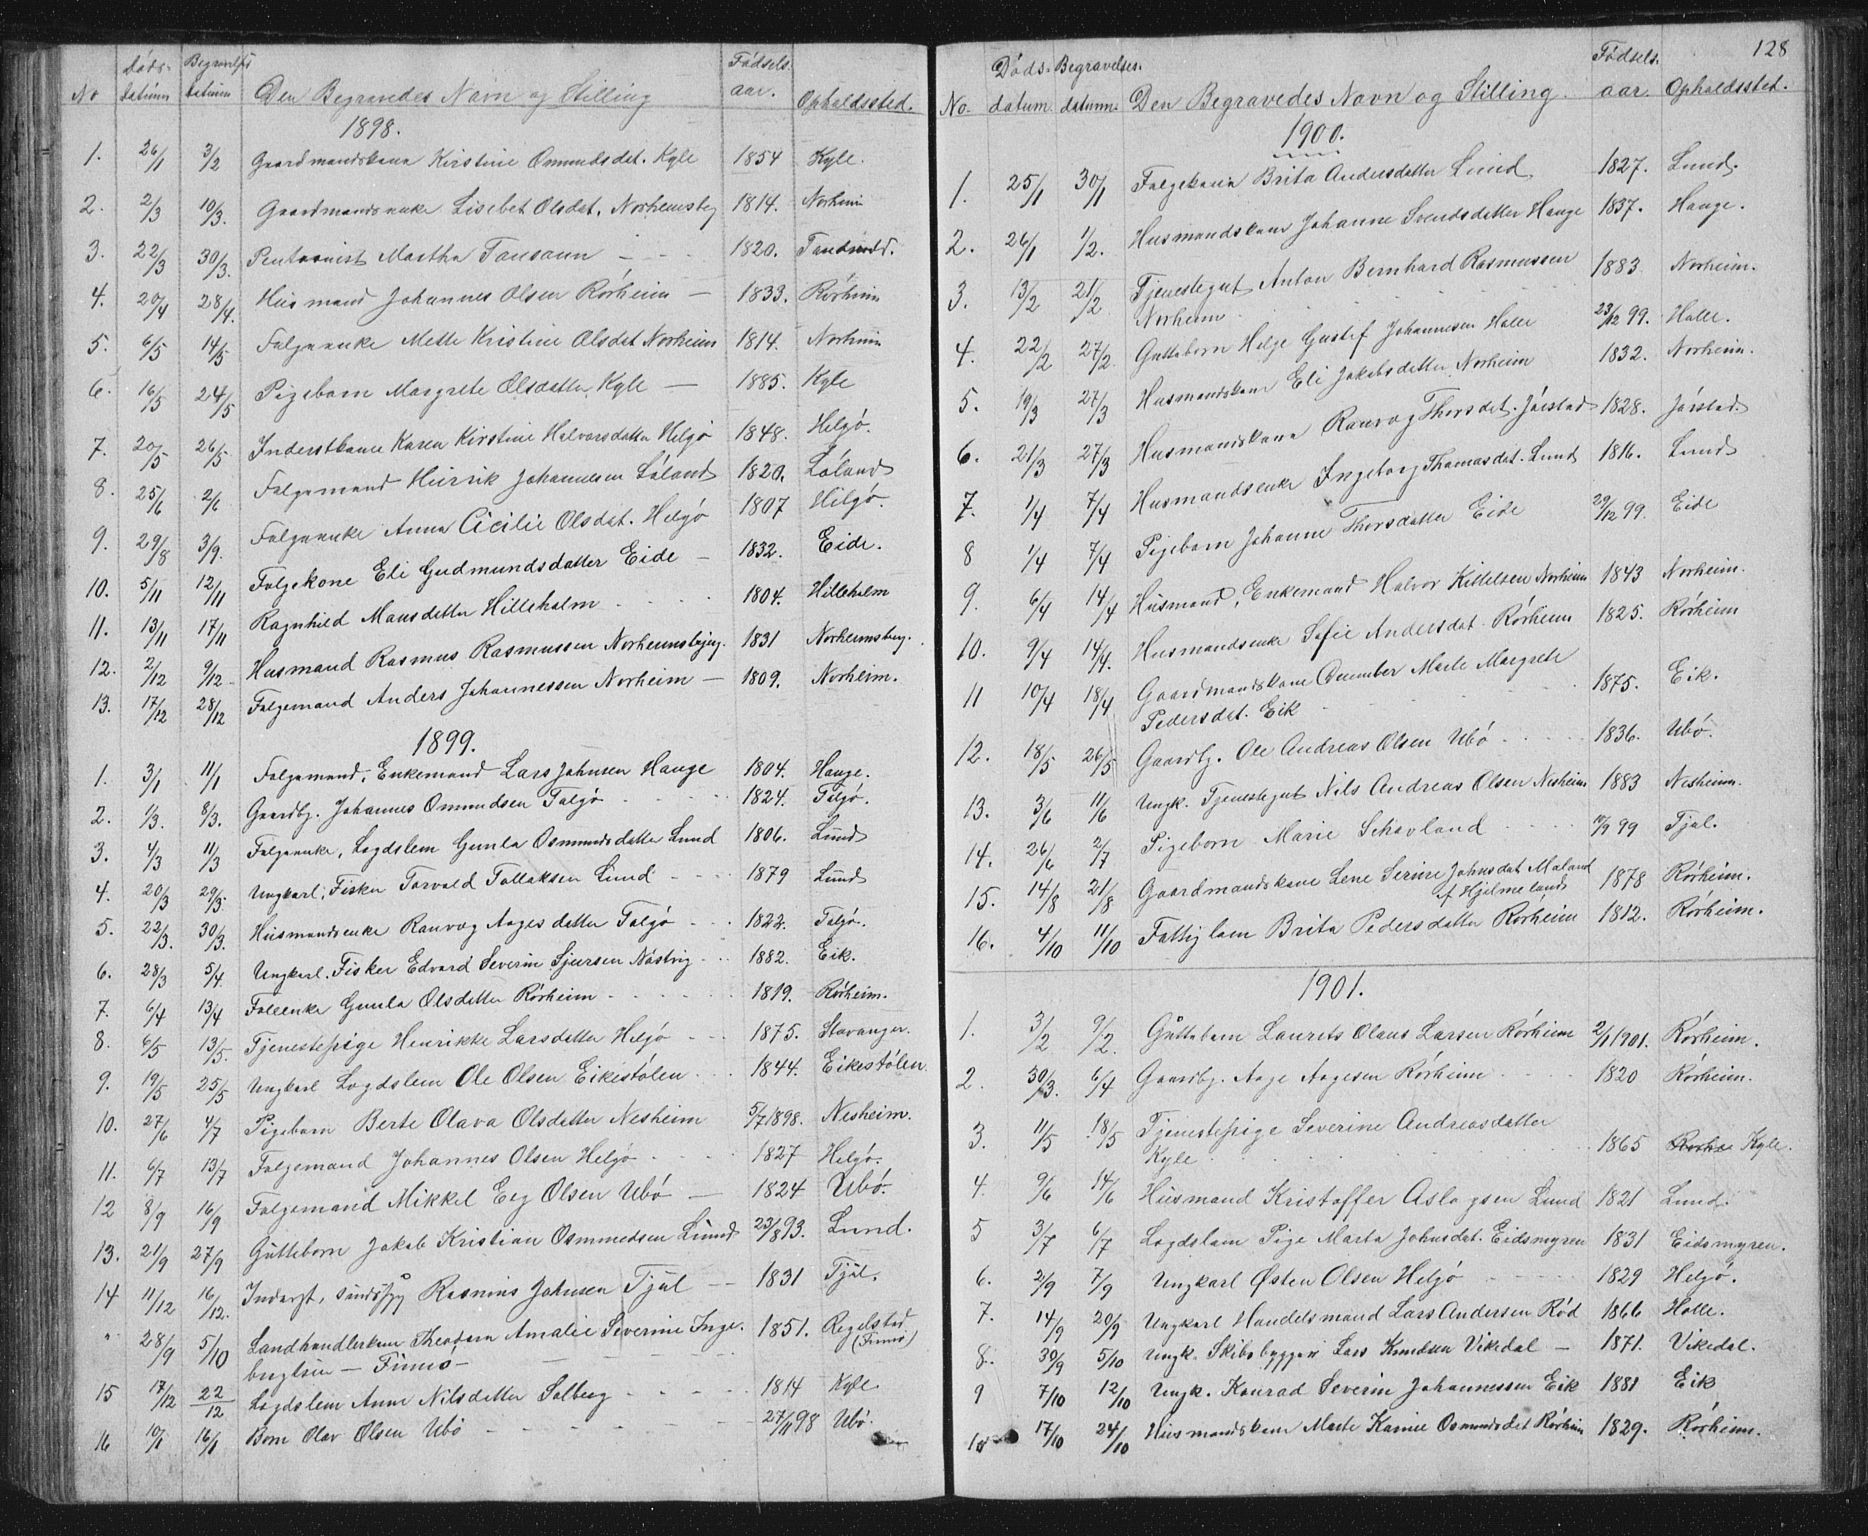 No Døds- datum Begravelses datum Den Begravedes Navn og Stilling Fødsels- aar. Opholdssted.
1898.
1. 26/1 3/2 Gaardmandskone Kirstine Omundsdat. Kyle 1854 Kyle.
2. 2/3 10/3. Gaardmandsenke Lisebet Olsdat. Norheimsbyg 1814. Norheim
3. 22/3 30/3. Martha 1820.
4. 20/4 28/4. Husmand Johannes Olsen Rørheim — 1833. Rørheim
5. 6/5 14/5 Folgeenke Mette Kristine Olsdat Norheim 1814. Norheim
6. 16/5 24/5 Pigebarn Margrete Olsdatter Kyle — 1885. Kyle
7. 20/5 26/5 Inderstkone Karen Kirstine Halvorsdatter Helgø 1848. Helgø.
8. 25/6 2/6 Folgemand Henrik Johannesen Løland 1820. Løland
9. 29/8 3/9. Folgeenke Anna Cicilie Olsdat. Helgø 1807 Helgø.
10. 5/11 12/11 Folgekone Eli Gudmundsdatter Eide — 1832. Eide.
11. 13/11 17/11 Ragnhild Mansdatter Hilleholm 1804. Hilleholm
12. 2/12 9/12 Husmand Rasmus Rasmussen Norheimsbyg. 1831 Norheimsbyg.
13. 17/12 28/12 Folgemand Anders Johannessen Norheim — 1809. Norheim.
1899.
1. 3/1 11/1 Folgemand, Enkemand Lars Johnsen Hauge 1804. Hauge.
2. 1/3. 8/3. Gaardbr. Johannes Ommundsen Talgø 1824. Talgø.
3. 4/3 11/3 Folgeenke, Lægdslem Gunla Osmundsdatter Lund 1806. Lund
4. 20/3 29/3. Ungkarl, Fisker Torvald Tollaksen Lund 1879 Lund
5. 22/3. 30/3. Husmandsenke Ranvøg Aagesdatter Talgø 1822. Talgø.
6. 28/3 5/4. Ungkarl. Fisker Edvard Severin Sjursen Nåstvig 1882. Eik.
7. 6/4 13/4 Gunla Olsdatter Rørheim 1819. Rørheim.
8. 6/5 13/5. Tjenestepige Henrikke Larsdatter Helgø 1875. Stavanger.
9. 19/5 25/5 Ungkarl Lægdslem Ole Olsen Eikestølen 1844. Eikestølen
10. 27/6 4/7 Pigebarn Berte Olava Olsdatter Nesheim 5/7 1898. Nesheim.
11. 6/7 13/7 Folgemand Johannes Olsen Helgø 1827 Helgø.
12 8/9 16/9 Folgemand Mikkel Eeg Olsen Ubø — 1824 Ubø.
13. 21/9 27/9 Gutteborn Jakob Kristian Osmundsen Lund 23/8 93. Lund.
14 11/12 16/12. Inderst, Rasmus Johnsen Tjul — 1831 Tjul.
" 28/9 5/10 Landhandlerkone Theodora Amalie Severine Inge- 1851. Regelstad
bregtsen — Finnø — (Finnø)
15 17/12 22/12 Lægdslem Anne Nilsdatter Solberg 1814 Kyle
16 10/1 16/1 Barn Olav Olsen Ubø 27/11 98 Ubø.
128
No. Døds- datum. Begravelses- datum. Den Begravedes Navn og Stilling. Fødsels- aar. Opholdssted.
1900.
1. 25/1 30/1 Folgekone Brita Andersdatter Lund 1827. Lund.
2. 26/1 1/2. Husmandskone Johanne Svendsdatter Hauge 1837. Hauge.
3. 13/2 21/2 Tjenestegut Anton Bernhard Rasmussen
Norheim 1883 Norheim.
4. 22/2 27/2. Guttebarn Helge Gustef Johannesen Halle 23/12 99. Halle.
5. 19/3 27/3 Husmandskone Eli Jakobsdatter Norheim 1832. Norheim.
6. 21/3 27/3 Husmandskone Ranvøg Thorsdat. Jørstad 1828. Jørstad
7. 1/4 7/4 Husmandsenke Ingeborg Thomasdat. Lund 1816. Lund
8 1/4 7/4 Pigebarn Johanne Thorsdatter Eide 29/12 99. Eide
9. 6/4 14/4 Husmand, Enkemand Halvor Kittelsen Norheim 1843 Norheim.
10. 9/4 14/4. Husmandsenke Sofie Andersdat. Rørheim 1825. Rørheim
11 10/4 18/4 Gaardmandskone Marte Margrete
Pedersdat. Eik 1875. Eik.
12. 18/5 26/5 Gaardbr. Ole Andreas Olsen Ubø 1836. Ubø.
13. 3/6 11/6 Ungk. Tjenestegut Nils Andreas Olsen Nesheim 1883 Nesheim.
14. 26/6 2/7 Pigebarn Marie Schavland /9 99 Tjul.
15. 14/8 21/8 Gaardmandskone Lene Serine Johnsdat Maland
af Hjelmeland 1878 Rørheim.
16. 4/10 11/10 Fattiglem Brita Pedersdatter Rørheim 1812. Rørheim.
1901.
1. 3/2 9/2. Guttebarn Laurits Olaus Larsen Rørheim 2/1 1901. Rørheim.
2. 30/3. 6/4 Gaardbr. Aage Aagesen Rørheim 1820 Rørheim.
3. 11/5 18/5 Tjenestepige Severine Andreasdatter
Kyle 1865 Kyle.
4. 9/6 14/6 Husmand Kristoffer Aslagsen Lund 1821 Lund.
5 3/7 6/7 Lægdslem Pige Marta Johnsdat. Eidsmyren 1831 Eidsmyren.
6. 2/9 7/9 Ungkarl Østen Olsen Helgø 1829 Helgø.
7. 14/9 20/9 Ungkarl Handelsmand Lars Andersen Rød 1866 Halle.
8. 30/9 5/10 Ungk. Skibsbygger Lars Knudsen Vikedal — 1871. Vikedal.
9 7/10 12/10 Ungk. Konrad Severin Johannessen Eik 1881 Eik
10 17/10 24/10 Husmandskone Marte Karine Osmundsdat Rørheim 1829. Rørheim.